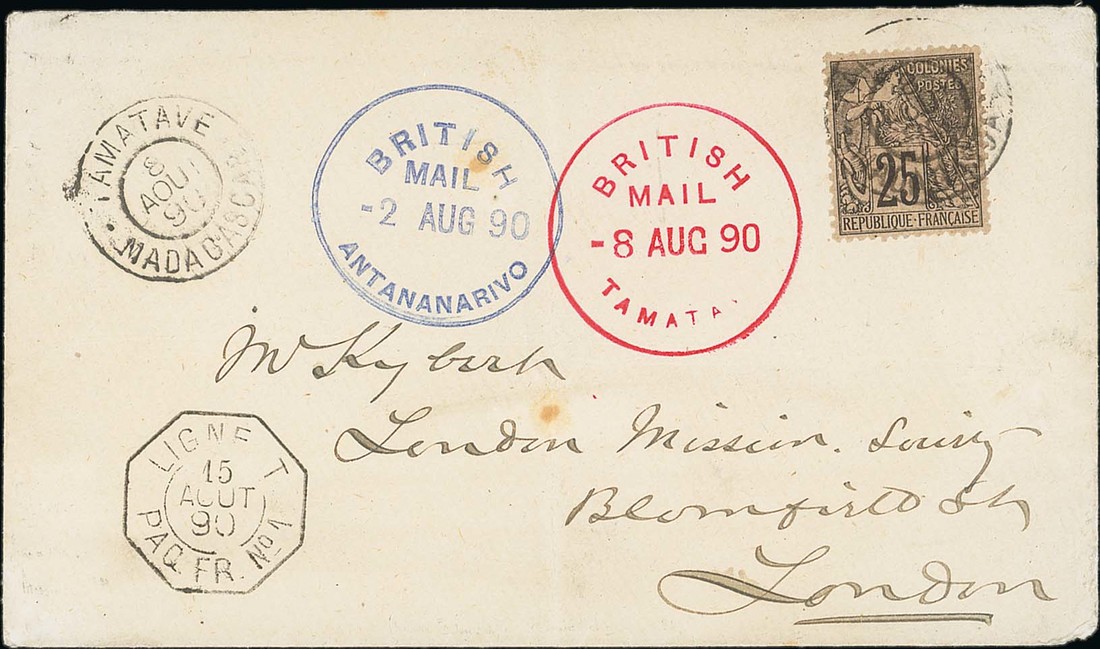 TAMATAVE
8
AOUT
90
MADAGASCAR
BRITISH
MAIL
-2 AUG 90
ANTANANARIVO
BRITISH
MAIL
-8 AUG 90
TAMATA
COLONIES
POSTES
25
RÉPUBLIQUE-FRANÇAISE
Mr
London Mission. Society
Blomfield St
London
LIGNE T
15
AOUT
90
PAQ. FR. No 1